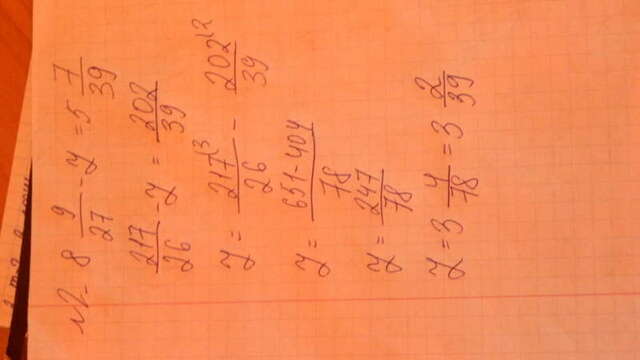 №2. 8 9/27 - y = 5 7/39
217/26 - y = 202/39
y = 217\3/26 - 202\2/39
y = 651-404/78
y = 247/78
y = 3 4/78 = 3 2/39